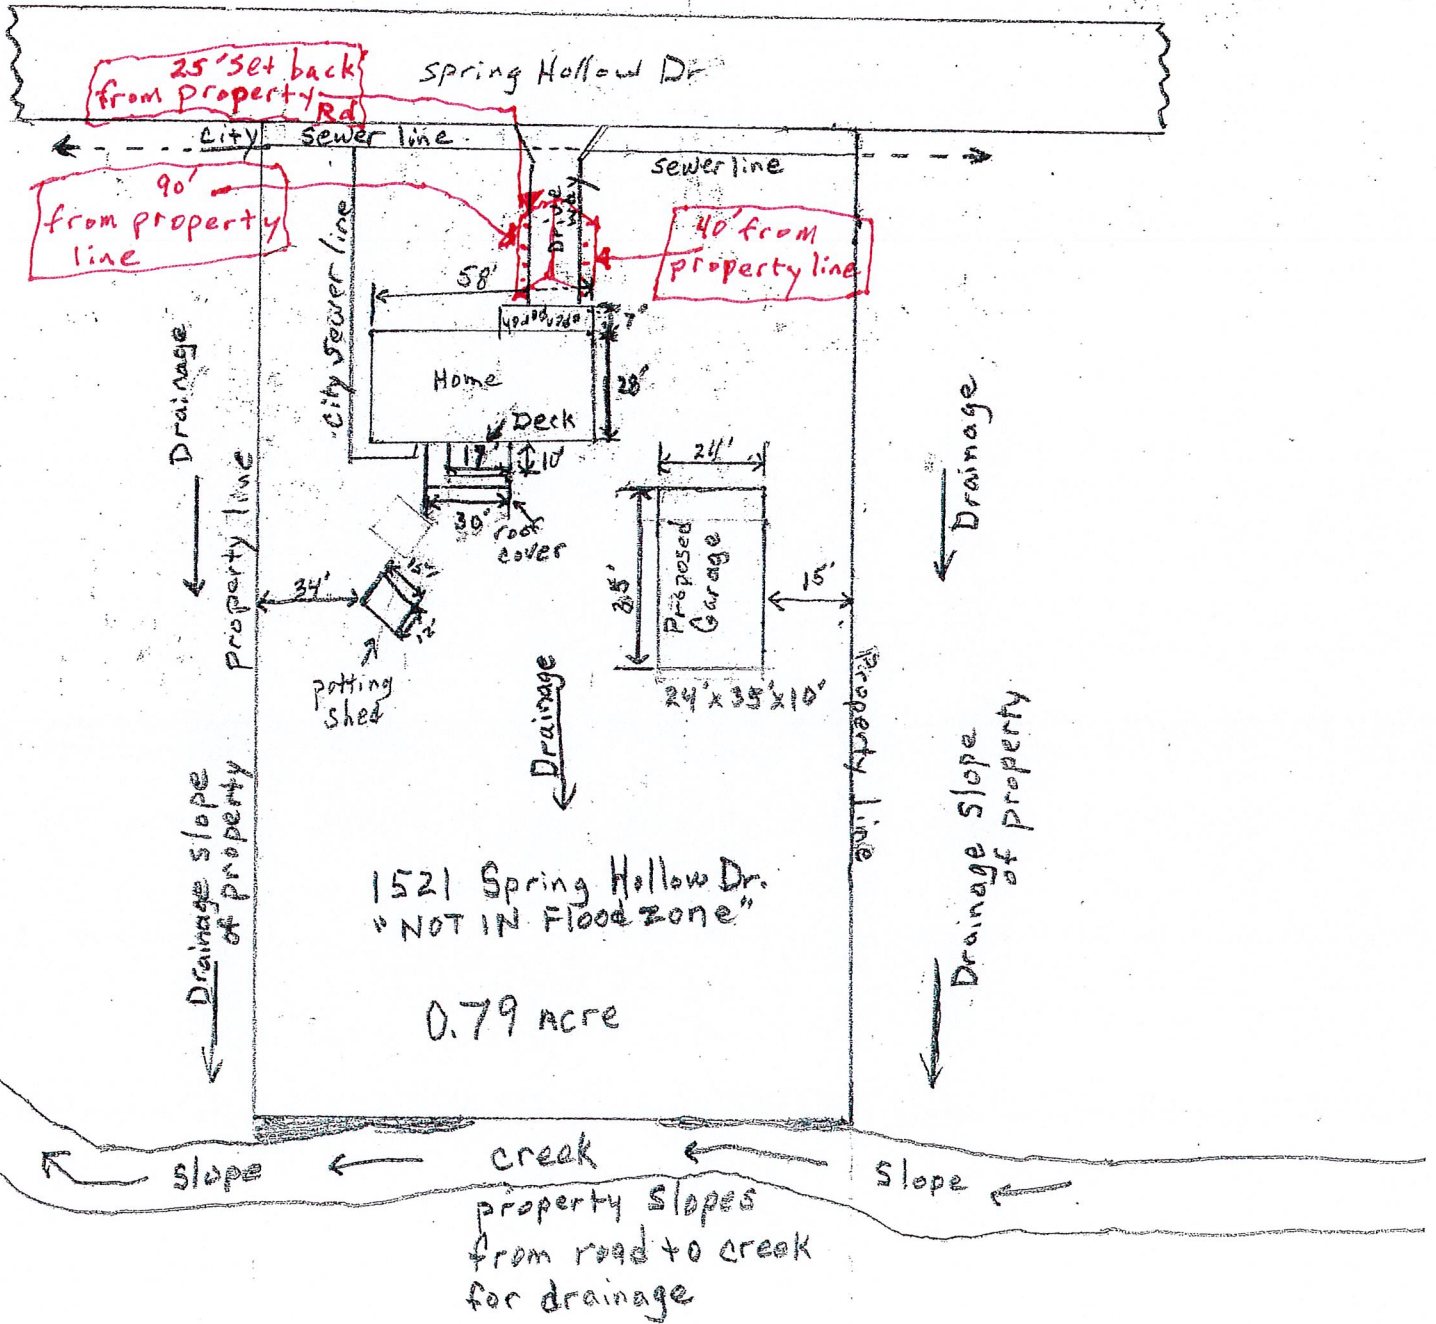 25' set back
from property
Rd
Spring Hollow Dr
City
sewer line
sewer line
90'
from property
line
40' from
property line
City sewer line
Drive
way
58'
open porch
7'
Home
28'
Deck
17'
10'
30'
roof
cover
24'
35'
Proposed
Garage
24' x 35' x 10'
15'
34'
15'
12'
potting
shed
Drainage
Drainage
Drainage
property line
property line
Drainage Slope
of property
Drainage Slope
of property
1521 Spring Hollow Dr.
"NOT IN Flood zone"
0.79 Acre
Slope
creek
Slope
property slopes
from road to creek
for drainage